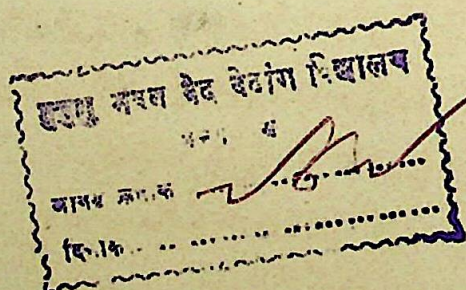 मुमुक्षु भवन वेद वेदांग विद्यालय
आगत क्रमांक
दिनांक